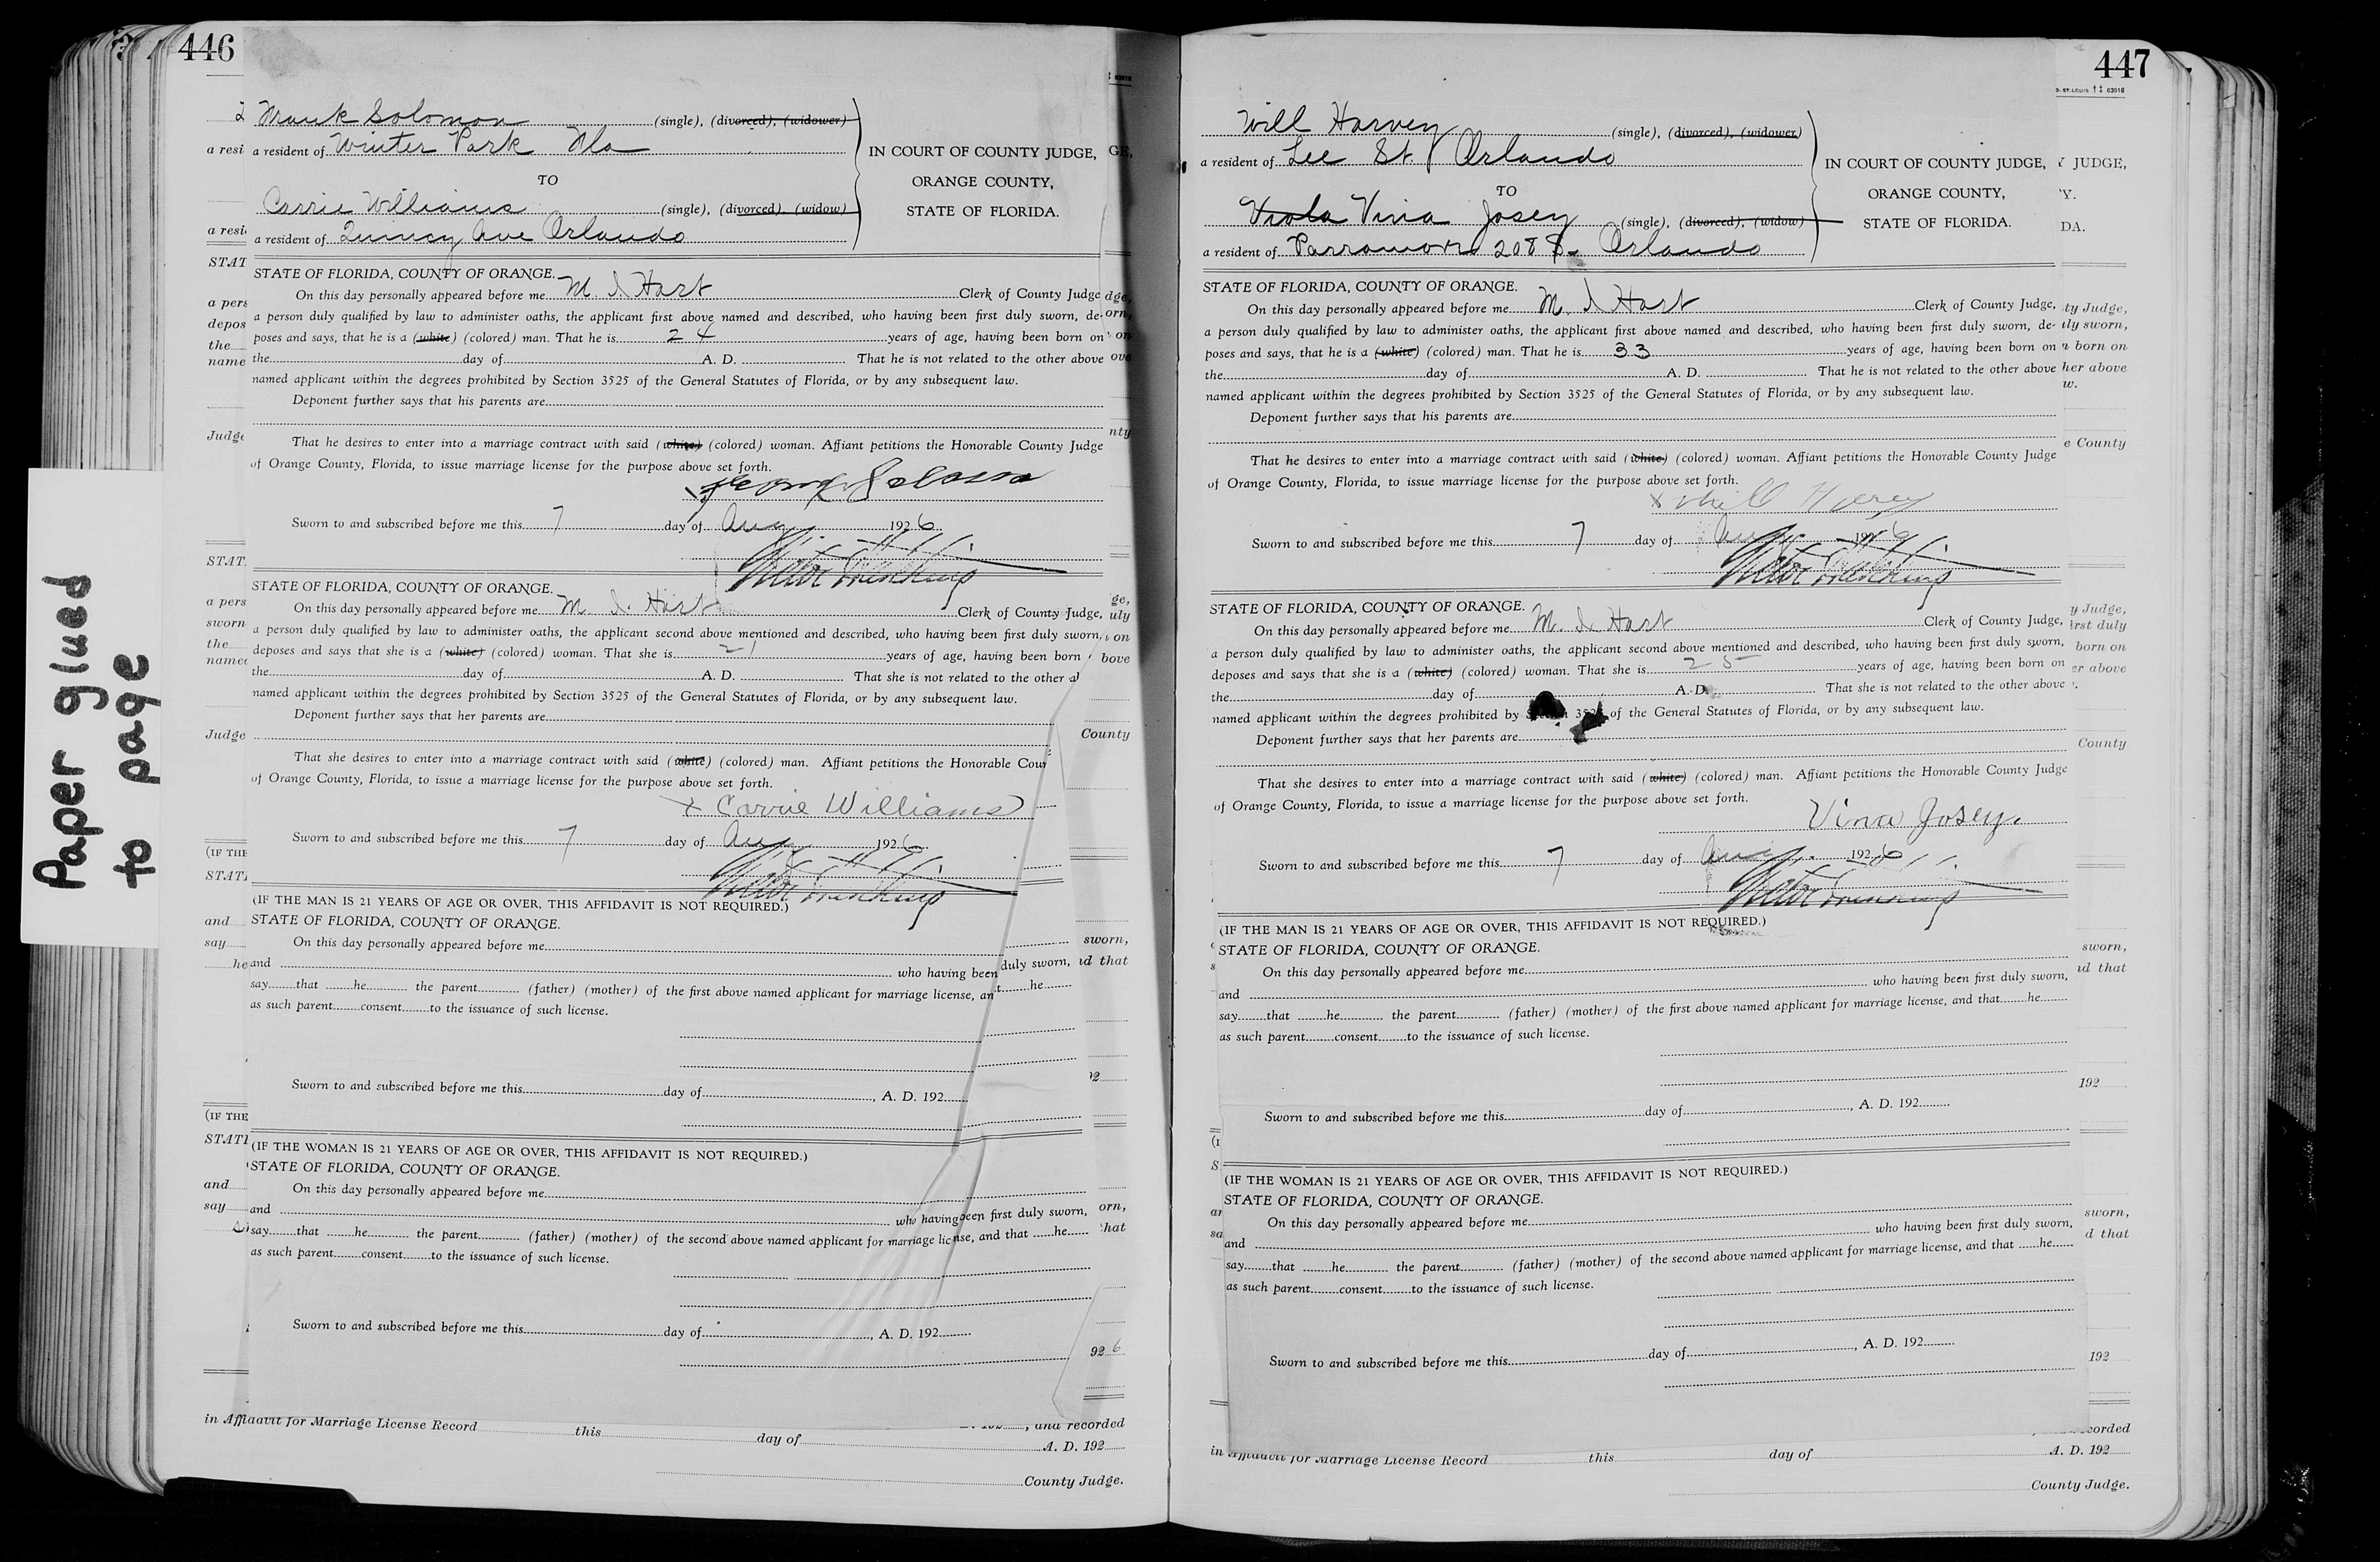 Paper glued
to page
446
Frank Solomon (single), (divorced), (widower)
a resident of Winter Park Fla
TO
Carrie Williams (single), (divorced), (widow)
a resident of Quincy Ave Orlando
IN COURT OF COUNTY JUDGE,
ORANGE COUNTY,
STATE OF FLORIDA.
STATE OF FLORIDA, COUNTY OF ORANGE.
On this day personally appeared before me M. I. Hart Clerk of County Judge
a person duly qualified by law to administer oaths, the applicant first above named and described, who having been first duly sworn, de-
poses and says, that he is a (white) (colored) man. That he is 24 years of age, having been born on
the day of A. D. That he is not related to the other above
named applicant within the degrees prohibited by Section 3525 of the General Statutes of Florida, or by any subsequent law.
Deponent further says that his parents are
That he desires to enter into a marriage contract with said (white) (colored) woman. Affiant petitions the Honorable County Judge
of Orange County, Florida, to issue marriage license for the purpose above set forth.
Sworn to and subscribed before me this 7 day of Aug 1926
STATE OF FLORIDA, COUNTY OF ORANGE.
On this day personally appeared before me M. I. Hart Clerk of County Judge,
a person duly qualified by law to administer oaths, the applicant second above mentioned and described, who having been first duly sworn,
deposes and says that she is a (white) (colored) woman. That she is 21 years of age, having been born
the day of A. D. That she is not related to the other
named applicant within the degrees prohibited by Section 3525 of the General Statutes of Florida, or by any subsequent law.
Deponent further says that her parents are
That she desires to enter into a marriage contract with said (white) (colored) man. Affiant petitions the Honorable
of Orange County, Florida, to issue a marriage license for the purpose above set forth.
x Carrie Williams
Sworn to and subscribed before me this 7 day of Aug 1926
(IF THE MAN IS 21 YEARS OF AGE OR OVER, THIS AFFIDAVIT IS NOT REQUIRED.)
STATE OF FLORIDA, COUNTY OF ORANGE.
On this day personally appeared before me
and who having been duly sworn,
say that he the parent (father) (mother) of the first above named applicant for marriage license, he
as such parent consent to the issuance of such license.
Sworn to and subscribed before me this day of , A. D. 192
(IF THE WOMAN IS 21 YEARS OF AGE OR OVER, THIS AFFIDAVIT IS NOT REQUIRED.)
STATE OF FLORIDA, COUNTY OF ORANGE.
On this day personally appeared before me
and who having been first duly sworn,
say that he the parent (father) (mother) of the second above named applicant for marriage license, and that he
as such parent consent to the issuance of such license.
Sworn to and subscribed before me this day of , A. D. 192
, and recorded
in Affidavit for Marriage License Record this day of A. D. 192
County Judge.
447
Will Harvey (single), (divorced), (widower)
a resident of Lee St Orlando
TO
Viola Vina Josey (single), (divorced), (widow)
a resident of Parramore 208 S. Orlando
IN COURT OF COUNTY JUDGE,
ORANGE COUNTY,
STATE OF FLORIDA.
STATE OF FLORIDA, COUNTY OF ORANGE.
On this day personally appeared before me M. I. Hart Clerk of County Judge,
a person duly qualified by law to administer oaths, the applicant first above named and described, who having been first duly sworn, de-
poses and says, that he is a (white) (colored) man. That he is 33 years of age, having been born on
the day of A. D. That he is not related to the other above
named applicant within the degrees prohibited by Section 3525 of the General Statutes of Florida, or by any subsequent law.
Deponent further says that his parents are
That he desires to enter into a marriage contract with said (white) (colored) woman. Affiant petitions the Honorable County Judge
of Orange County, Florida, to issue marriage license for the purpose above set forth.
Sworn to and subscribed before me this 7 day of Aug 1926
STATE OF FLORIDA, COUNTY OF ORANGE.
On this day personally appeared before me M. I. Hart Clerk of County Judge,
a person duly qualified by law to administer oaths, the applicant second above mentioned and described, who having been first duly sworn,
deposes and says that she is a (white) (colored) woman. That she is 25 years of age, having been born on
the day of A. D. That she is not related to the other above
named applicant within the degrees prohibited by of the General Statutes of Florida, or by any subsequent law.
Deponent further says that her parents are
That she desires to enter into a marriage contract with said (white) (colored) man. Affiant petitions the Honorable County Judge
of Orange County, Florida, to issue a marriage license for the purpose above set forth.
Vina Josey.
Sworn to and subscribed before me this 7 day of Aug 1926
(IF THE MAN IS 21 YEARS OF AGE OR OVER, THIS AFFIDAVIT IS NOT REQUIRED.)
STATE OF FLORIDA, COUNTY OF ORANGE.
On this day personally appeared before me
and who having been first duly sworn,
say that he the parent (father) (mother) of the first above named applicant for marriage license, and that he
as such parent consent to the issuance of such license.
Sworn to and subscribed before me this day of , A. D. 192
(IF THE WOMAN IS 21 YEARS OF AGE OR OVER, THIS AFFIDAVIT IS NOT REQUIRED.)
STATE OF FLORIDA, COUNTY OF ORANGE.
On this day personally appeared before me
and who having been first duly sworn,
say that he the parent (father) (mother) of the second above named applicant for marriage license, and that he
as such parent consent to the issuance of such license.
Sworn to and subscribed before me this day of , A. D. 192
in Affidavit for Marriage License Record this day of A. D. 192
County Judge.